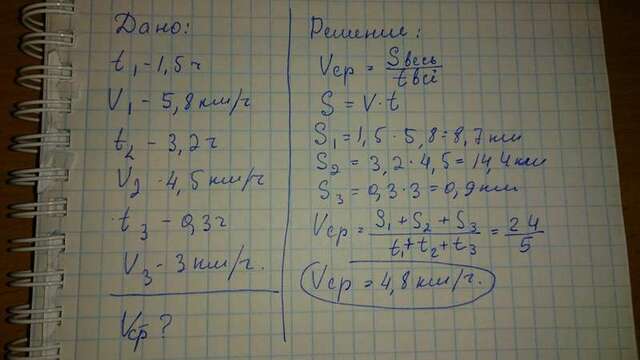 Дано:
t₁ - 1,5 ч
V₁ - 5,8 км/ч
t₂ - 3,2 ч
V₂ - 4,5 км/ч
t₃ - 0,3 ч
V₃ - 3 км/ч.
Vср ?
Решение:
Vср = Sвесь / tвсі
S = V · t
S₁ = 1,5 · 5,8 = 8,7 км
S₂ = 3,2 · 4,5 = 14,4 км
S₃ = 0,3 · 3 = 0,9 км
Vср = S₁ + S₂ + S₃ / t₁ + t₂ + t₃ = 24 / 5
Vср = 4,8 км/ч.